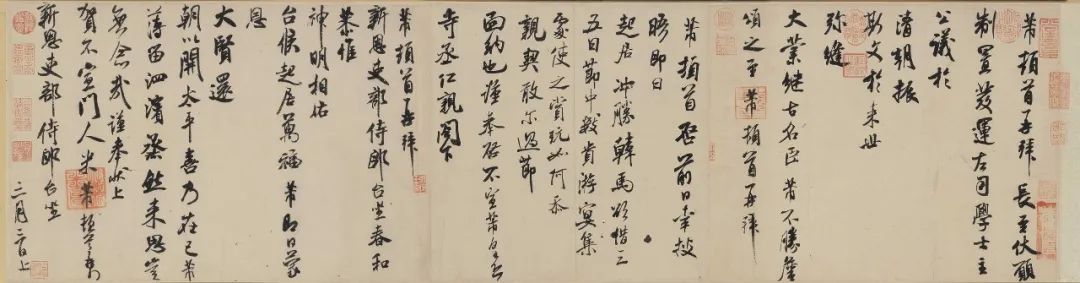 芾頓首再拜 長至伏願
制置發運左司學士主
公議於
清朝振
斯文於来世
弥縫
大業继古名臣 芾不勝詹
頌之至 芾頓首再拜
芾頓首啓前日承披
晤即日
起居冲勝韓馬欲借三
五日節中数貴游宴集
處使之賞玩如何恭
親契敢尔過節
面納也謹奉啓不宣芾頓首
寺丞仁親閣下
芾頓首再拜
新恩吏部侍郎台坐春和
恭惟
神明相祐
台候起居萬福芾即日蒙
恩
大賢還
朝以開太平喜乃在己芾
薄留泗濱烝然来思豈
無念哉謹奉状上
賀不宣門人米芾頓首
新恩吏部侍郎台坐
三月二日上